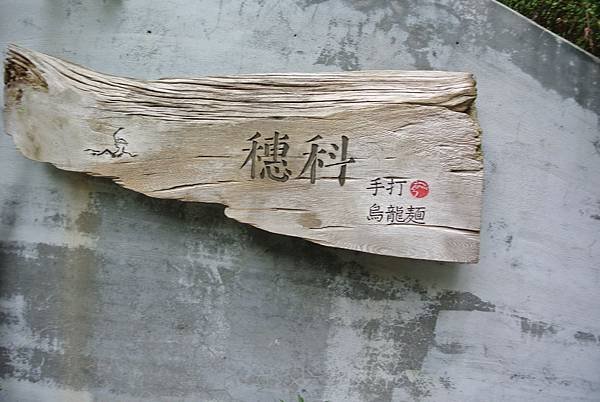 穗科
手打
烏龍麵